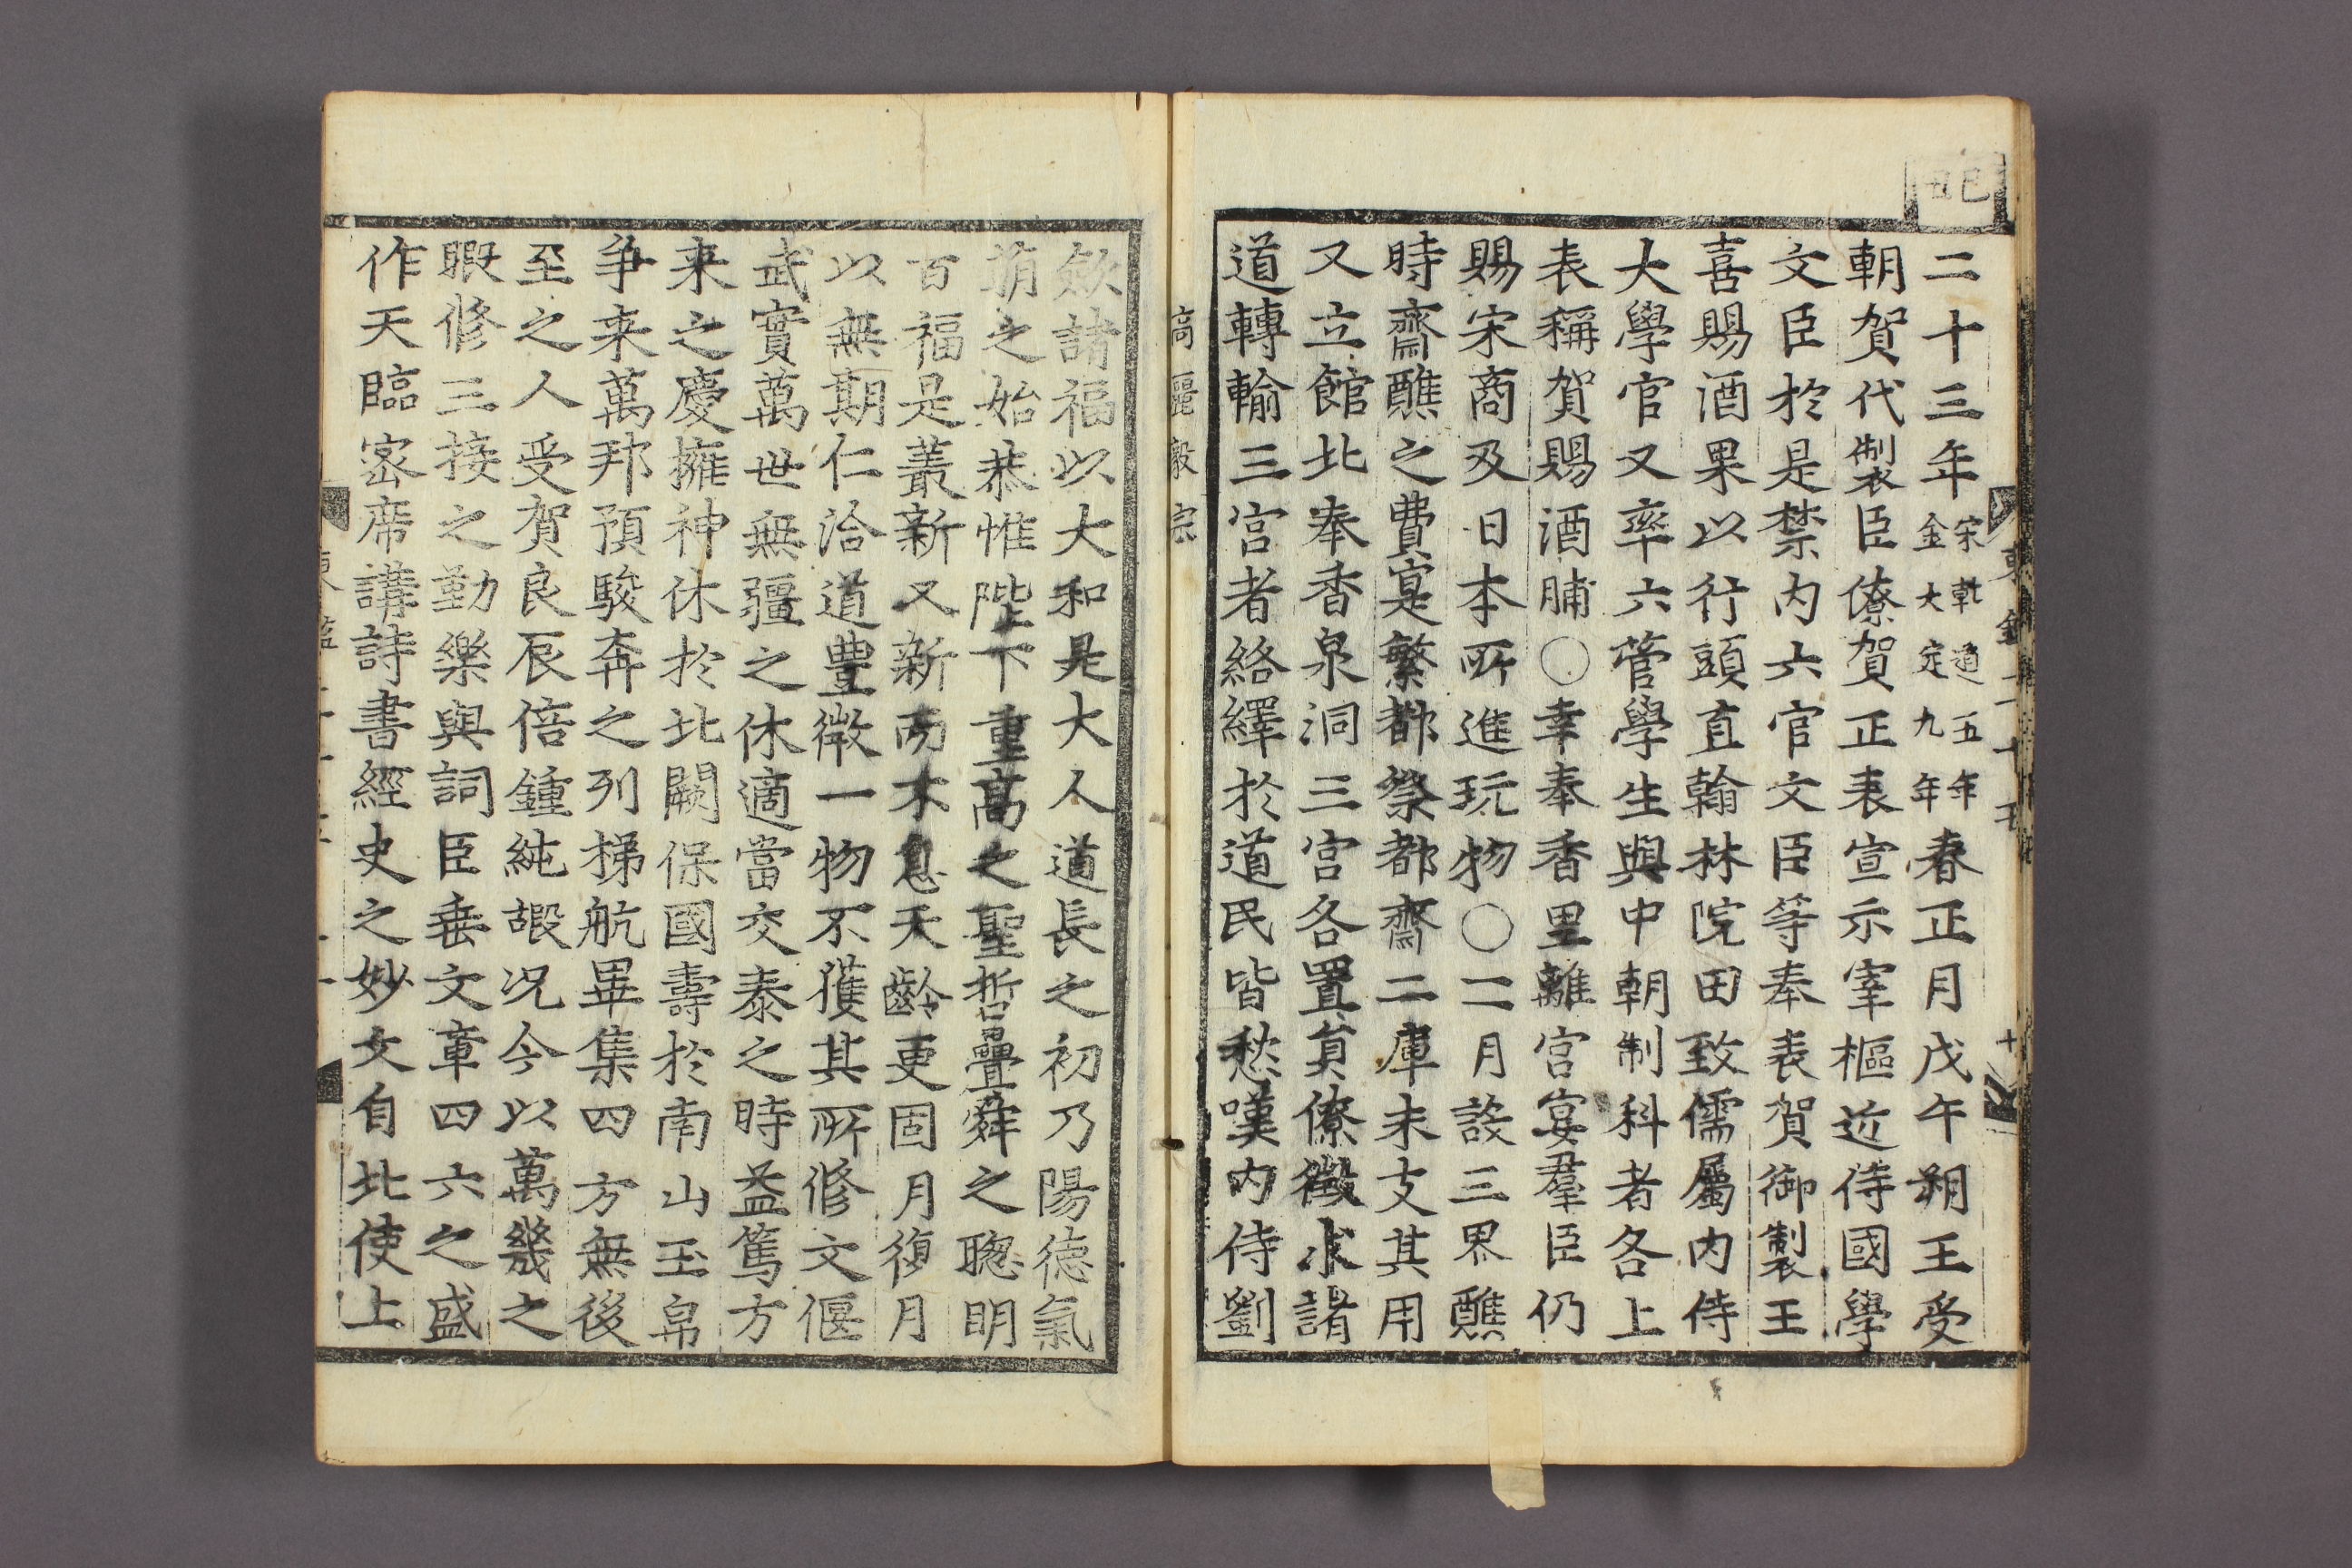 己丑
二十三年宋乾道五年金大定九年春正月戊午朔王受
朝賀代製臣僚賀正表宣示宰樞近侍國學
文臣於是禁內六官文臣等奉表賀御製王
喜賜酒果以行頭直翰林院田致儒屬內侍
大學官又率六管學生與中朝制科者各上
表稱賀賜酒脯○幸奉香里離宮宴羣臣仍
賜宋商及日本所進玩物○二月設三界醮
時齋醮之費寔繁都祭都齋二庫未支其用
又立館北奉香泉洞三宮各置員僚徵求諸
道轉輸三宮者絡繹於道民皆愁嘆內侍劉
高麗毅宗
歛諸福以大和是大人道長之初乃陽德氣
萠之始恭惟陛下重高之聖哲疊舜之聰明
百福是叢新又新而不息天齡更固月復月
以無期仁洽道豊微一物不獲其所修文偃
武實萬世無疆之休適當交泰之時益篤方
来之慶擁神休於北闕保國壽於南山玉帛
爭来萬邦預駿奔之列梯航畢集四方無後
至之人受賀良辰倍鍾純嘏况今以萬幾之
暇修三接之勤樂與詞臣垂文章四六之盛
作天臨宻席講詩書經史之妙文自北使上